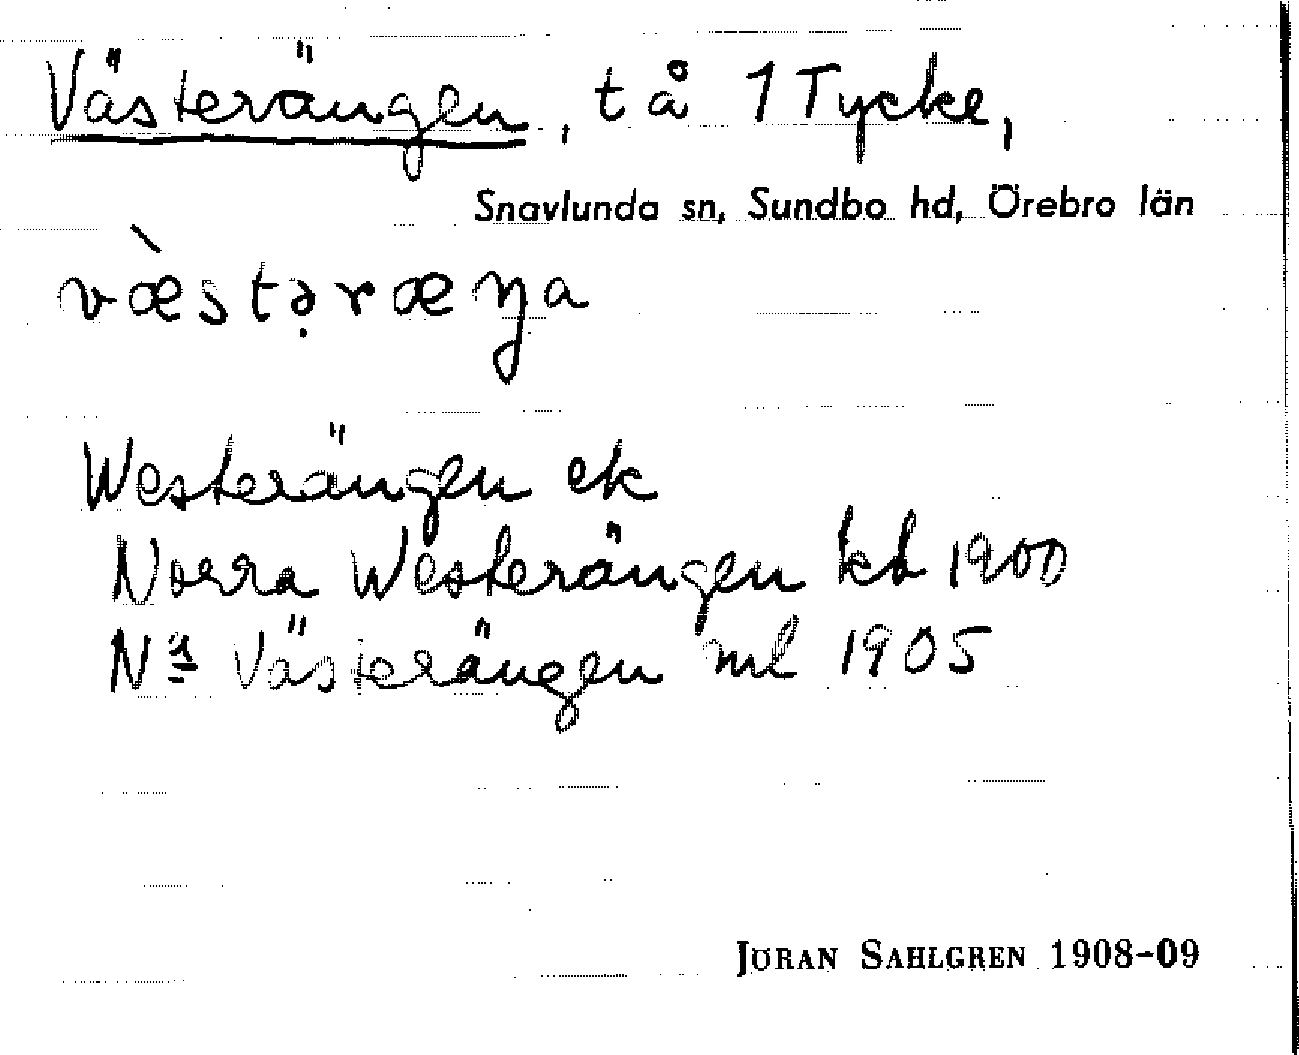 Västerängen, tå 1 Tycke,
Snavlunda sn, Sundbo hd, Örebro län
væ̀stə̣ræŋa
Westerängen ek
Norra Westerängen kb 1900
Nª Västerängen ml 1905
JÖRAN SAHLGREN 1908-09